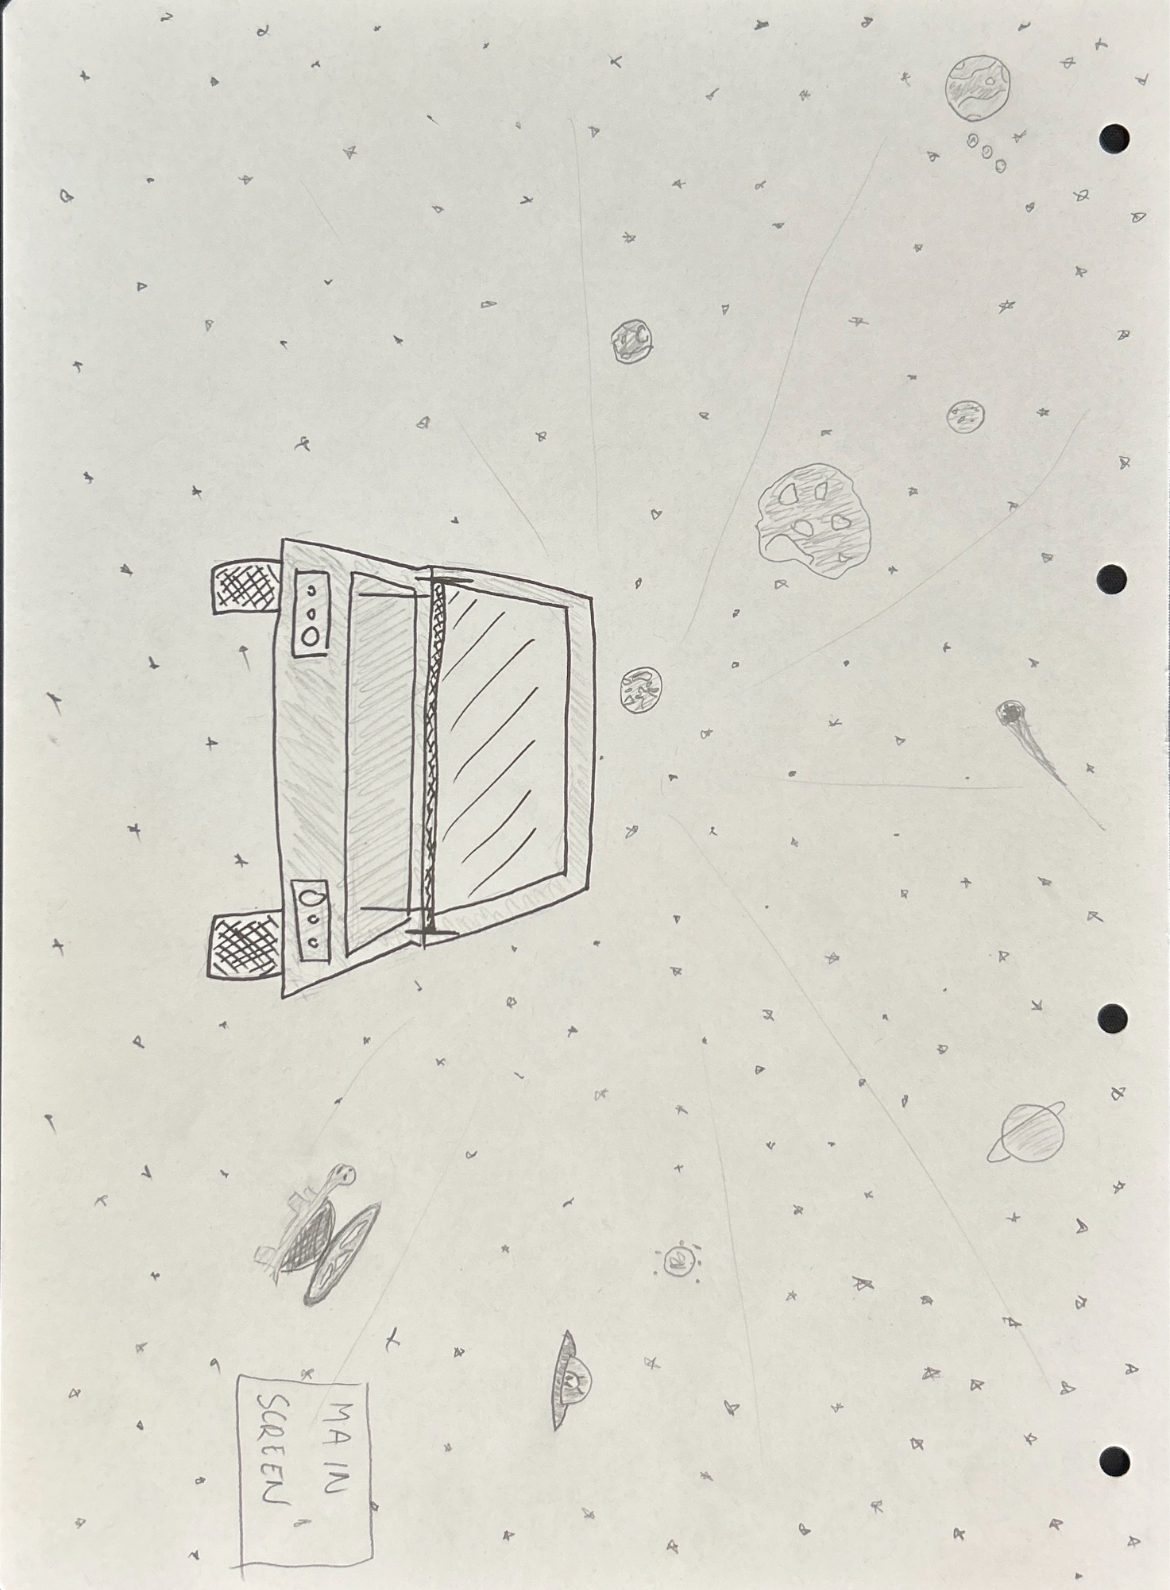 MAIN
SCREEN